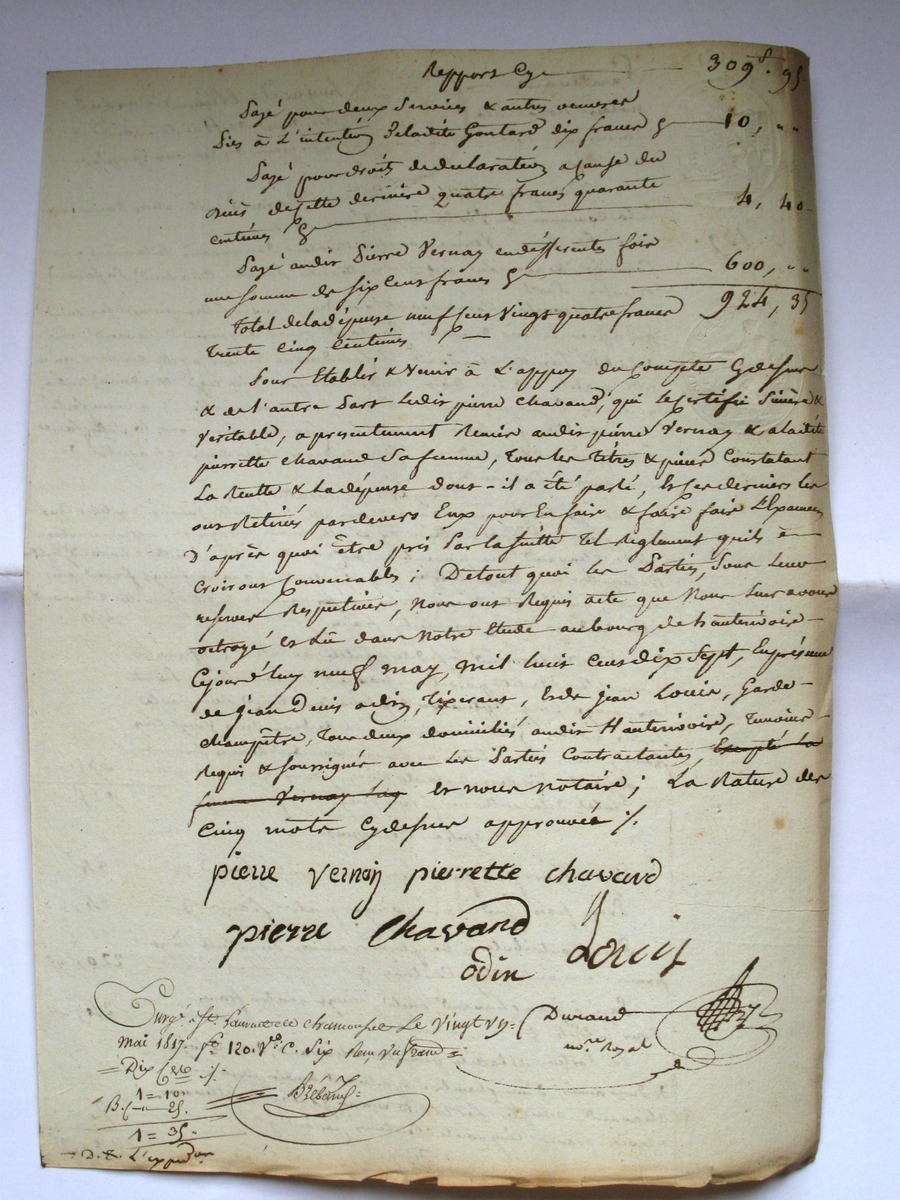 Report Cy 309f. 95
Payé pour deux Services & autres oeuvres
Pies à L'intention De ladite Goutard dix francs 10, " "
Payé pour droits de déclaration a cause du
décès de cette dernière quatre francs quarante
centimes 4, 40
Payé audit Pierre Vernay en différentes fois
une somme de six Cens francs 600, " "
Total de la dépense neuf Cens Vingt quatre francs 924, 35
Trente Cinq Centimes
Pour Etablir & Venir à L'appuy du Compte Cydessus
& de l'autre Part Ledit pierre Chavand, qui le Certifie Sincère &
Veritable, a presentement Remis audit pierre Vernay & a ladite
pierrette Chavand Sa femme, Tous les titres & pièces Constatant
La Recette & la dépense dont il a été parlé, Et ces derniers les
ont Retirés pardevers Eux pour En faire & faire faire L'Examen
D'après quoi être pris Par la suitte Tel Règlement quils
Croiront Convenables ; De tout quoi les Parties, Sous Leurs
reserves Respectives, Nous ont Requis acte que Nous Leur avons
octroyé et Lû dans Notre Etude au bourg de hauterivoire
Cejourd'huy neuf may, mil huit Cens dix Sept, En présence
de Jean Denis odin, Tixerant, Et de Jean Louis, Garde
champêtre, Tous deux domiciliés audit Hauterivoire, Témoins
Requis & soussignés avec Les Parties Contractantes, Excepté La
femme Vernay Et nous Notaire ; La Rature des
Cinq mots Cydessus approuvée ./.
pierre vernay pierrette chavand
pierre Chavand
odin Louis
Durand
no.re Royal
Enrgé. à St. Laurent de Chamousset Le Vingt
mai 1817. fo. 120. Vo. C. Six Reçu Un franc
Dix Ces ./.
1 = 10
B. 25.
1 = 35.
D. & L'expedon